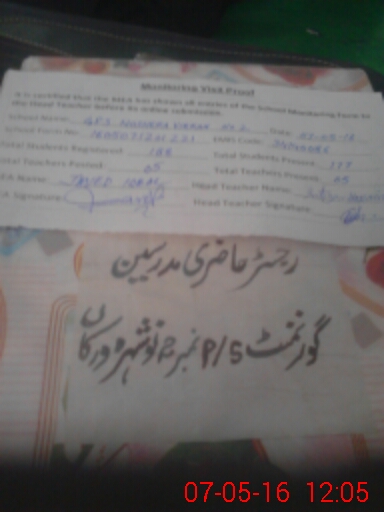 Monitoring Visit Proof
It is certified that the MEA has shown all entries of the School Monitoring Form to
the Head Teacher before its online submission
School Name: GPS Noshera Virkan No 2. Date
School Form No: EMIS Code:
Total Students Registered 188 Total Students Present: 177
Total Teachers Posted: 05 Total Teachers Present: 05
MEA Name: JAVED IQBAL Head Teacher Name:
MEA Signature: Head Teacher Signature:
رجسٹر حاضری مدرسین
گورنمنٹ P/S نمبر 2 نوشہرہ ورکاں
07-05-16 12:05